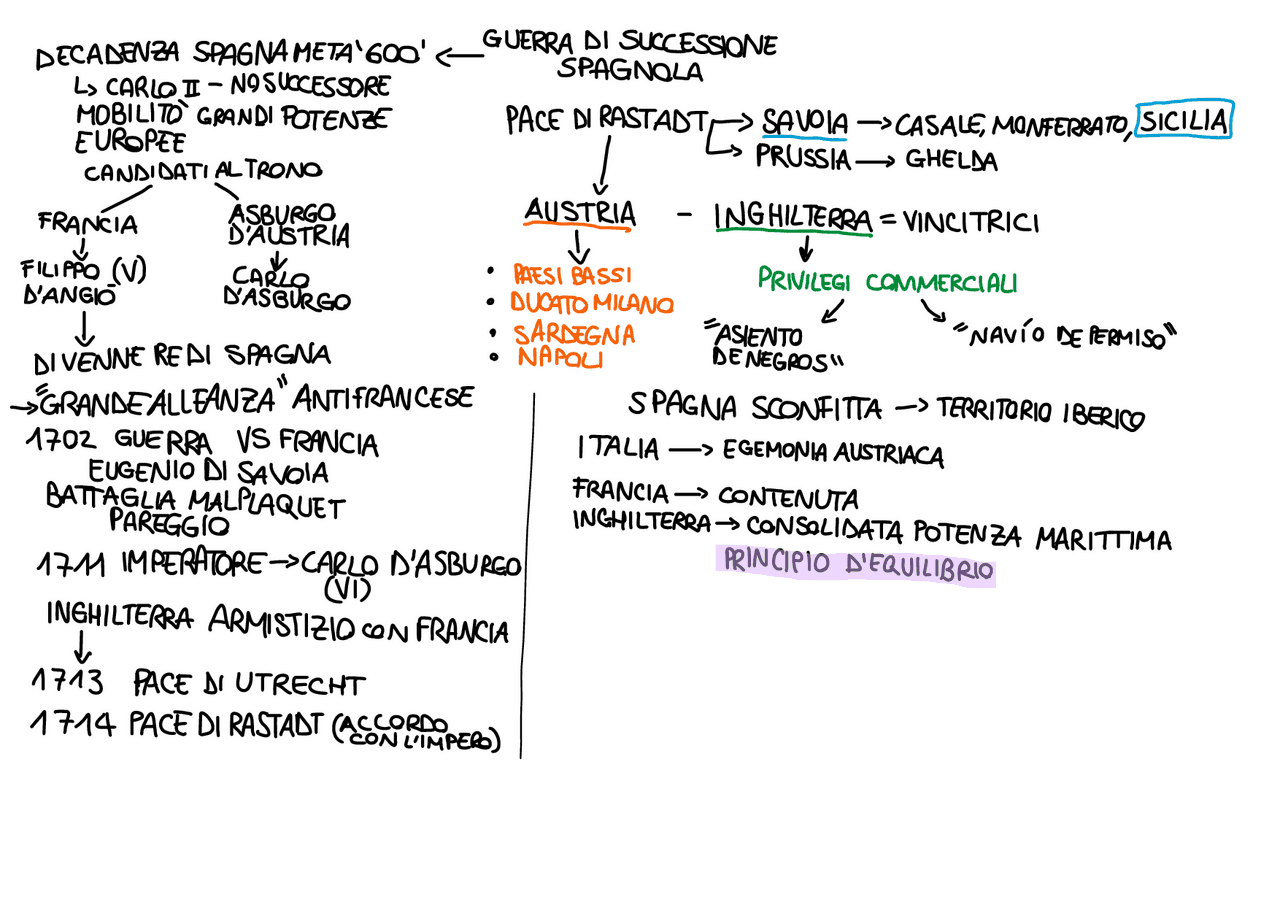 GUERRA DI SUCCESSIONE
SPAGNOLA
DECADENZA SPAGNA META '600'
CARLO II - NO SUCCESSORE
MOBILITÒ GRANDI POTENZE
EUROPEE
CANDIDATI AL TRONO
FRANCIA
FILIPPO (V)
D'ANGIÒ
ASBURGO
D'AUSTRIA
CARLO
D'ASBURGO
DIVENNE RE DI SPAGNA
"GRANDE ALLEANZA" ANTIFRANCESE
1702 GUERRA VS FRANCIA
EUGENIO DI SAVOIA
BATTAGLIA MALPLAQUET
PAREGGIO
1711 IMPERATORE → CARLO D'ASBURGO
(VI)
INGHILTERRA ARMISTIZIO CON FRANCIA
1713 PACE DI UTRECHT
1714 PACE DI RASTADT (ACCORDO
CON L'IMPERO)
PACE DI RASTADT → SAVOIA → CASALE, MONFERRATO, SICILIA
PRUSSIA → GHELDA
AUSTRIA - INGHILTERRA = VINCITRICI
• PAESI BASSI
• DUCATO MILANO
• SARDEGNA
• NAPOLI
PRIVILEGI COMMERCIALI
"ASIENTO
DE NEGROS"
"NAVÍO DE PERMISO"
SPAGNA SCONFITTA → TERRITORIO IBERICO
ITALIA → EGEMONIA AUSTRIACA
FRANCIA → CONTENUTA
INGHILTERRA → CONSOLIDATA POTENZA MARITTIMA
PRINCIPIO D'EQUILIBRIO